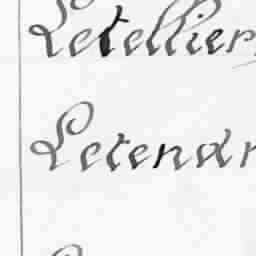 Letellier
Letendr